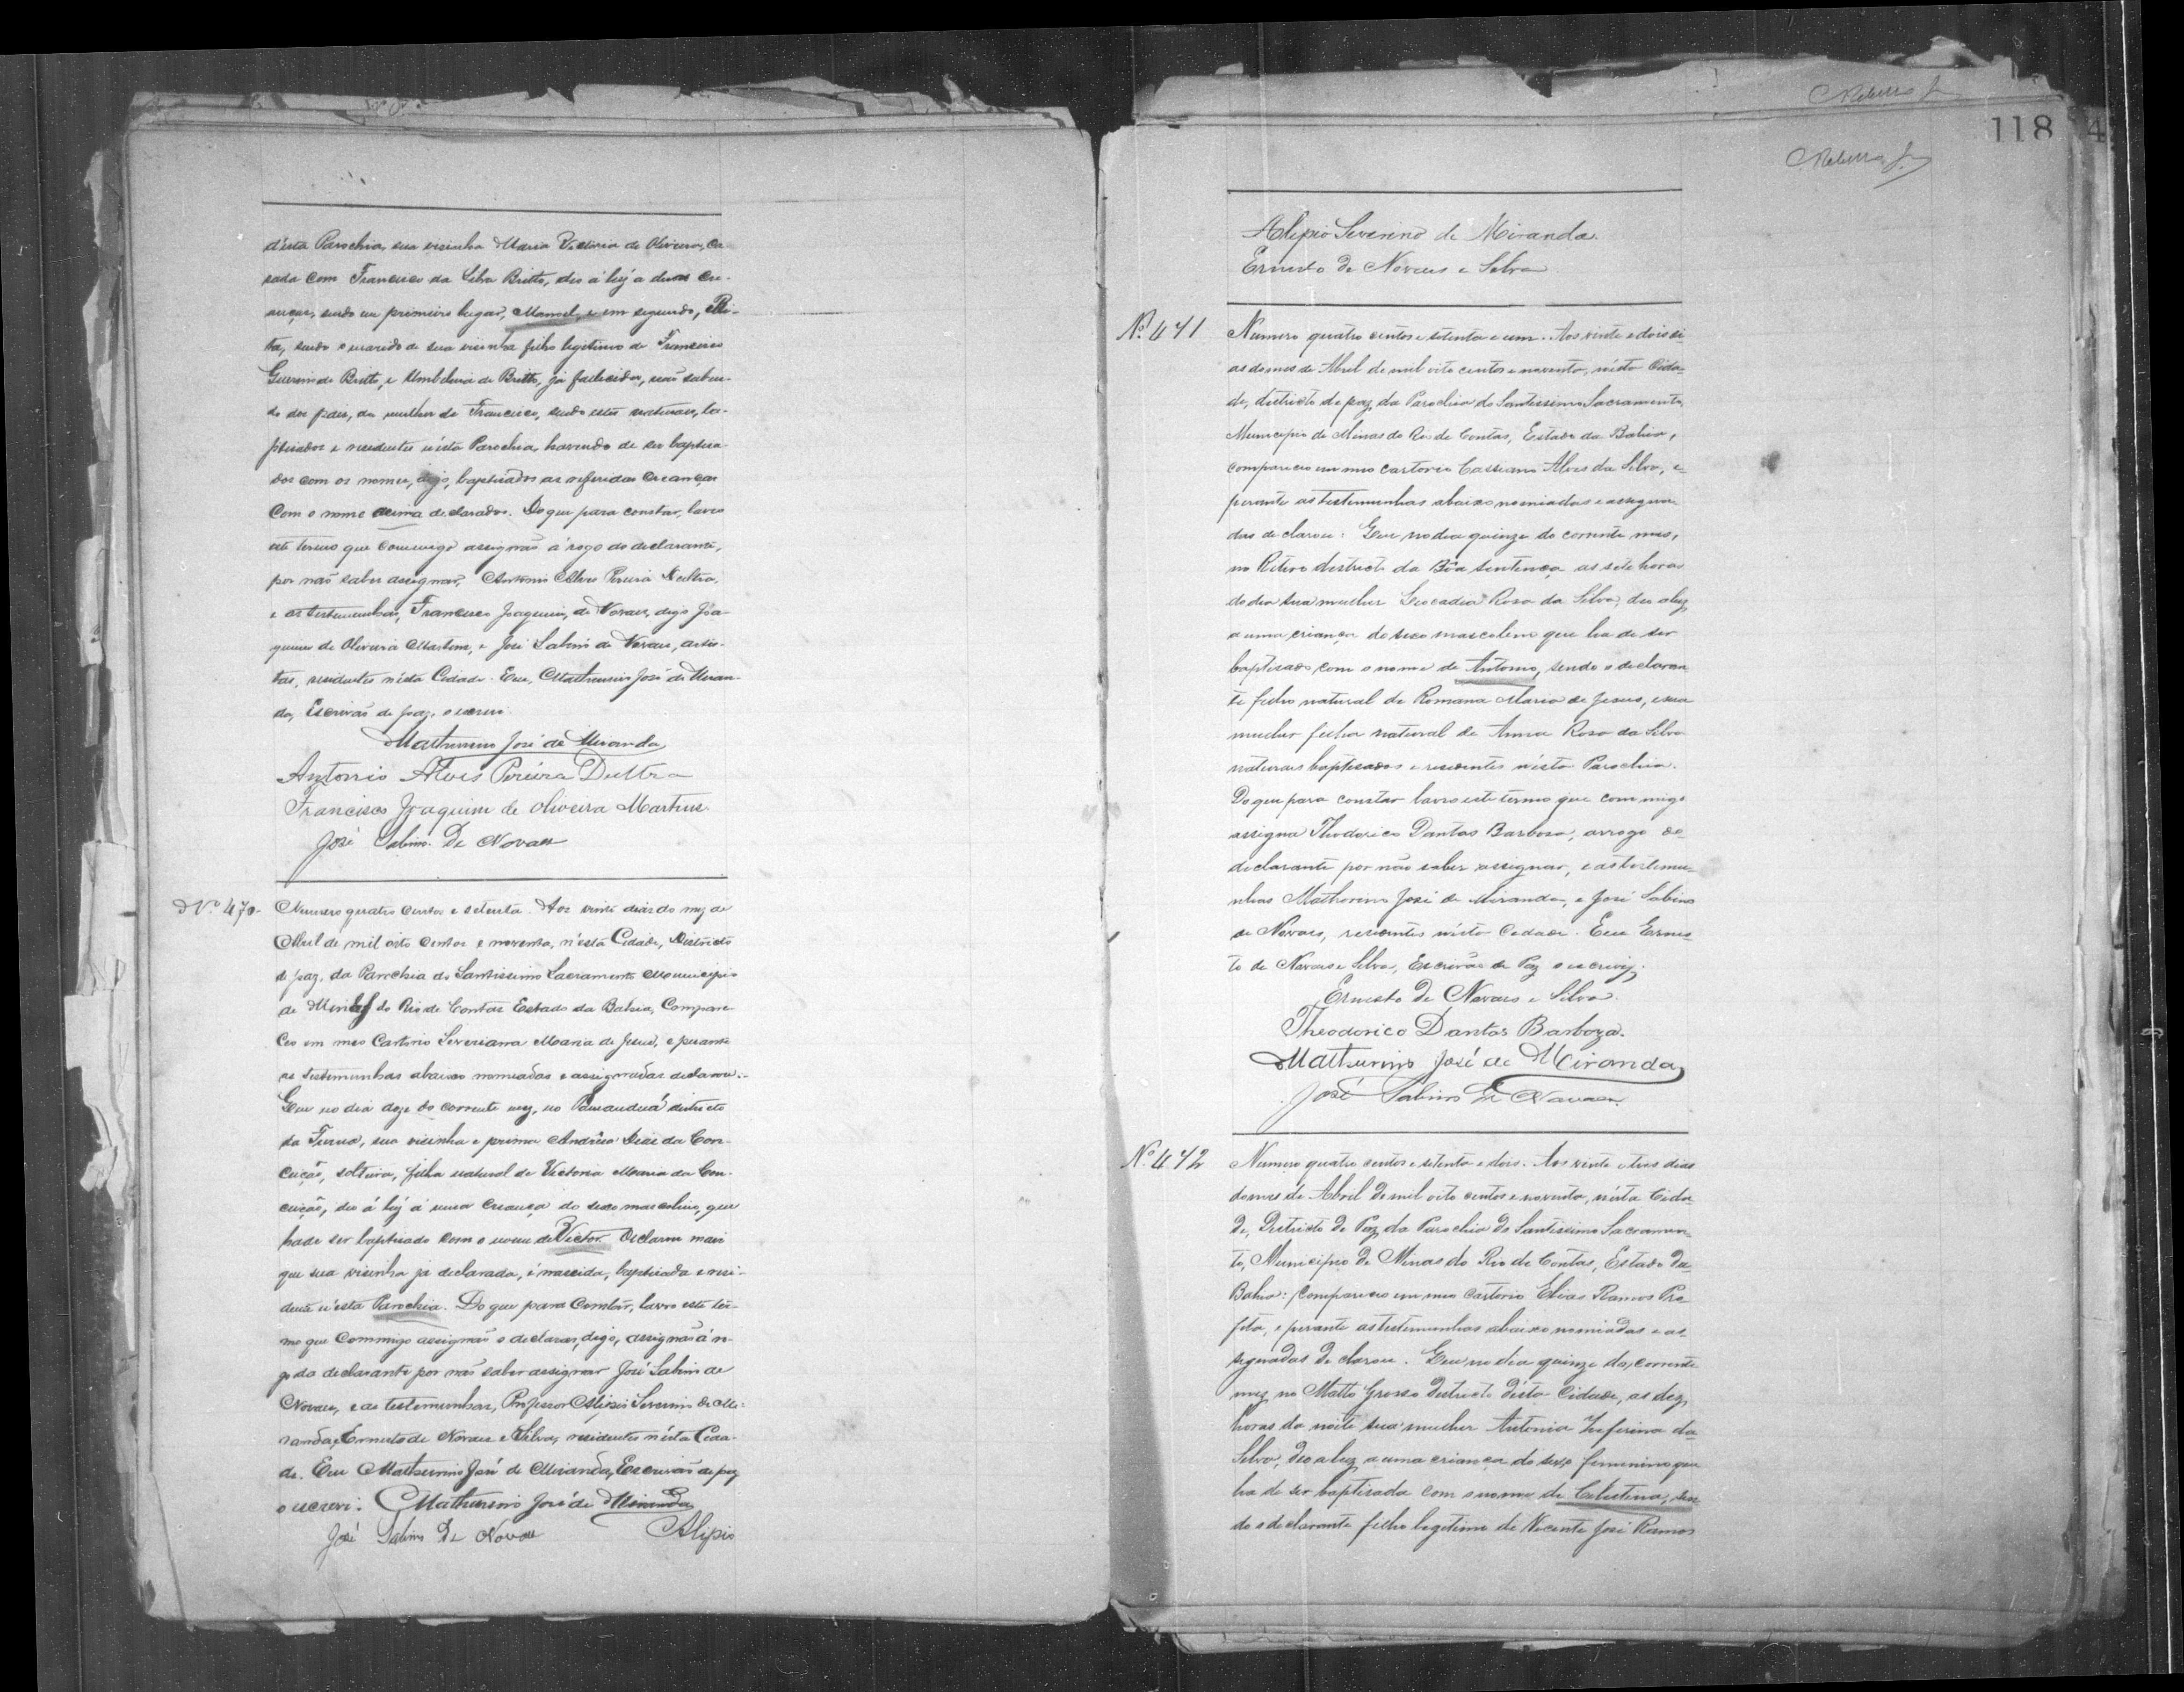 d'esta Parochia, sua visinha Maria Victoria de Oliveira, ca-
sada com Francisco da Silva Britto, deo á luz á duas cre-
anças, sendo em primeiro lugar, Manoel, e em segundo, Ri-
ta, sendo o marido de sua visinha filho legitimo de Francisco
de Britto, e Umbelina de Britto, já fallecidos, não saben-
do dos pais, da mulher de Francisco, sendo estes naturaes, ba-
ptisados e residentes n'esta Parochia, havendo de ser baptisa-
dos com os nomes, digo, baptisados as referidas creanças
com o nome acima declarados. Do que para constar, lavro
este termo que commigo assignão á rogo do declarante,
por não saber assignar, Antonio Alves Pereira Dultra,
e as testemunhas, Francisco Joaquim, de Novaes, digo Joa-
quim de Oliveira Martins, e José Sabino de Novaes, artis-
tas, residentes n'esta Cidade. Eu, Mathurino José de Miran-
da, Escrivão de paz, o escrevi.
Mathurino José de Miranda
Antonio Alves Pereira Dultra
Francisco Joaquim de Oliveira Martins.
José Sabino De Novaes
Nº 470- Numero quatro centos e setenta. Aos vinte dias do mez de
Abril de mil oito centos e noventa, n'esta Cidade, Districto
de paz, da Parochia do Santissimo Sacramento Municipio
de Minas do Rio de Contas Estado da Bahia, Compare-
ceo em meo Cartorio Severiana Maria de Jesus, e perante
as testemunhas abaixo nomeadas e assignadas declarou:-
Que no dia doze do corrente mez, no districto
da Furna, sua visinha e prima Andreza Dias da Con-
ceição, solteira, filha natural de Victoria Maria da Con-
ceição, deo á luz á uma creança do sexo mascolino, que
hade ser baptisado com o nome de Victor. Declarou mais
que sua visinha já declarada, é nascida, baptisada e resi-
dente n'esta Parochia. Do que para constar, lavro este ter-
mo que Commigo assignão o declaran, digo, assignão á ro-
go da declarante por não saber assignar José Sabino de
Novaes, e as testemunhas, Professor Alipio Severino de Mi-
randa, e Ernesto de Novaes e Silva, residentes n'esta Cida-
de. Eu Mathurino José de Miranda, Escrivão de paz
o escrevi. Mathurino José de Miranda
José Sabino De Novaes Alipio
118 4
Alipio Severino de Miranda.
Ernesto de Novaes e Silva
Nº 471 Numero quatro centos e setenta e um. Aos vinte e dois di-
as do mes de Abril de mil oito centos e noventa, n'esta Cida-
de, districto de paz, da Parochia do Santissimo Sacramento,
Municipio de Minas do Rio de Contas, Estado da Bahia,
compareceo em meo cartorio Cassiano Alves da Silva, e
perante as testemunhas abaixo nomiadas e assigna-
das declarou: Que no dia quinze do corrente mes,
no Retiro districto da Bôa Sentença as sete horas
do dia sua mulher Leocadia Rosa da Silva, deu a luz
a uma criança do sexo mascolino que ha de ser
baptisado com o nome de Antonio, sendo o declaran-
te filho natural de Romana Maria de Jesus, e sua
mulher filha natural de Anna Rosa da Silva
naturaes baptisados e residentes n'esta Parochia.
Do que para constar lavro este termo que commigo
assigna Theodorico Dantas Barbosa, arrogo do
declarante por não saber assignar, e as testemu-
nhas Mathorino José de Miranda, e José Sabino
de Novaes, residentes n'esta Cidade. Eu Ernes-
to de Novaes e Silva, Escrivão de Paz o escrevi.
Ernesto De Novaes e Silva.
Theodorico Dantas Barboza.
Mathurino José de Miranda
José Sabino De Novaes.
Nº 472 Numero quatro centos e setenta e dois. Aos vinte e tres dias
do mes de Abril de mil oito centos e noventa, n'esta Cida-
de, Districto de Paz, da Parochia do Santissimo Sacramen-
to, Municipio de Minas do Rio de Contas, Estado da
Bahia: Compareceo em meu Cartorio Elias Ramos Pro-
feta, e perante as testemunhas abaixo nomiadas e as-
signadas declarou. Que no dia quinze do corrente
mez no Matto Grosso Districto d'esta Cidade, as dez
horas da noite sua mulher Antonia Zeferina da
Silva, deo a luz a uma criança do sexo feminino que
ha de ser baptisada com o nome de Celestina, sen-
do o declarante filho legitimo de Vicente José Ramos